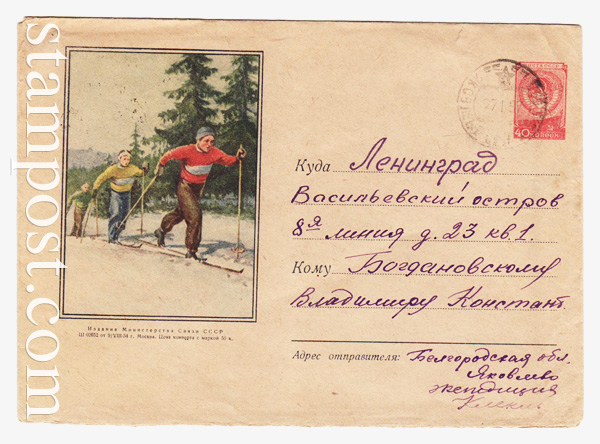 stampost.com
ПОЧТА СССР
40 КОПЕЕК
Куда Ленинград
Васильевский остров
8я линия д. 23 кв. 1.
Кому Богдановскому
Владимиру Констант.
Издание Министерства Связи СССР
г. Москва. Цена конверта с маркой 50 к.
Адрес отправителя: Белгородская обл.
Яковлево
экспедиция